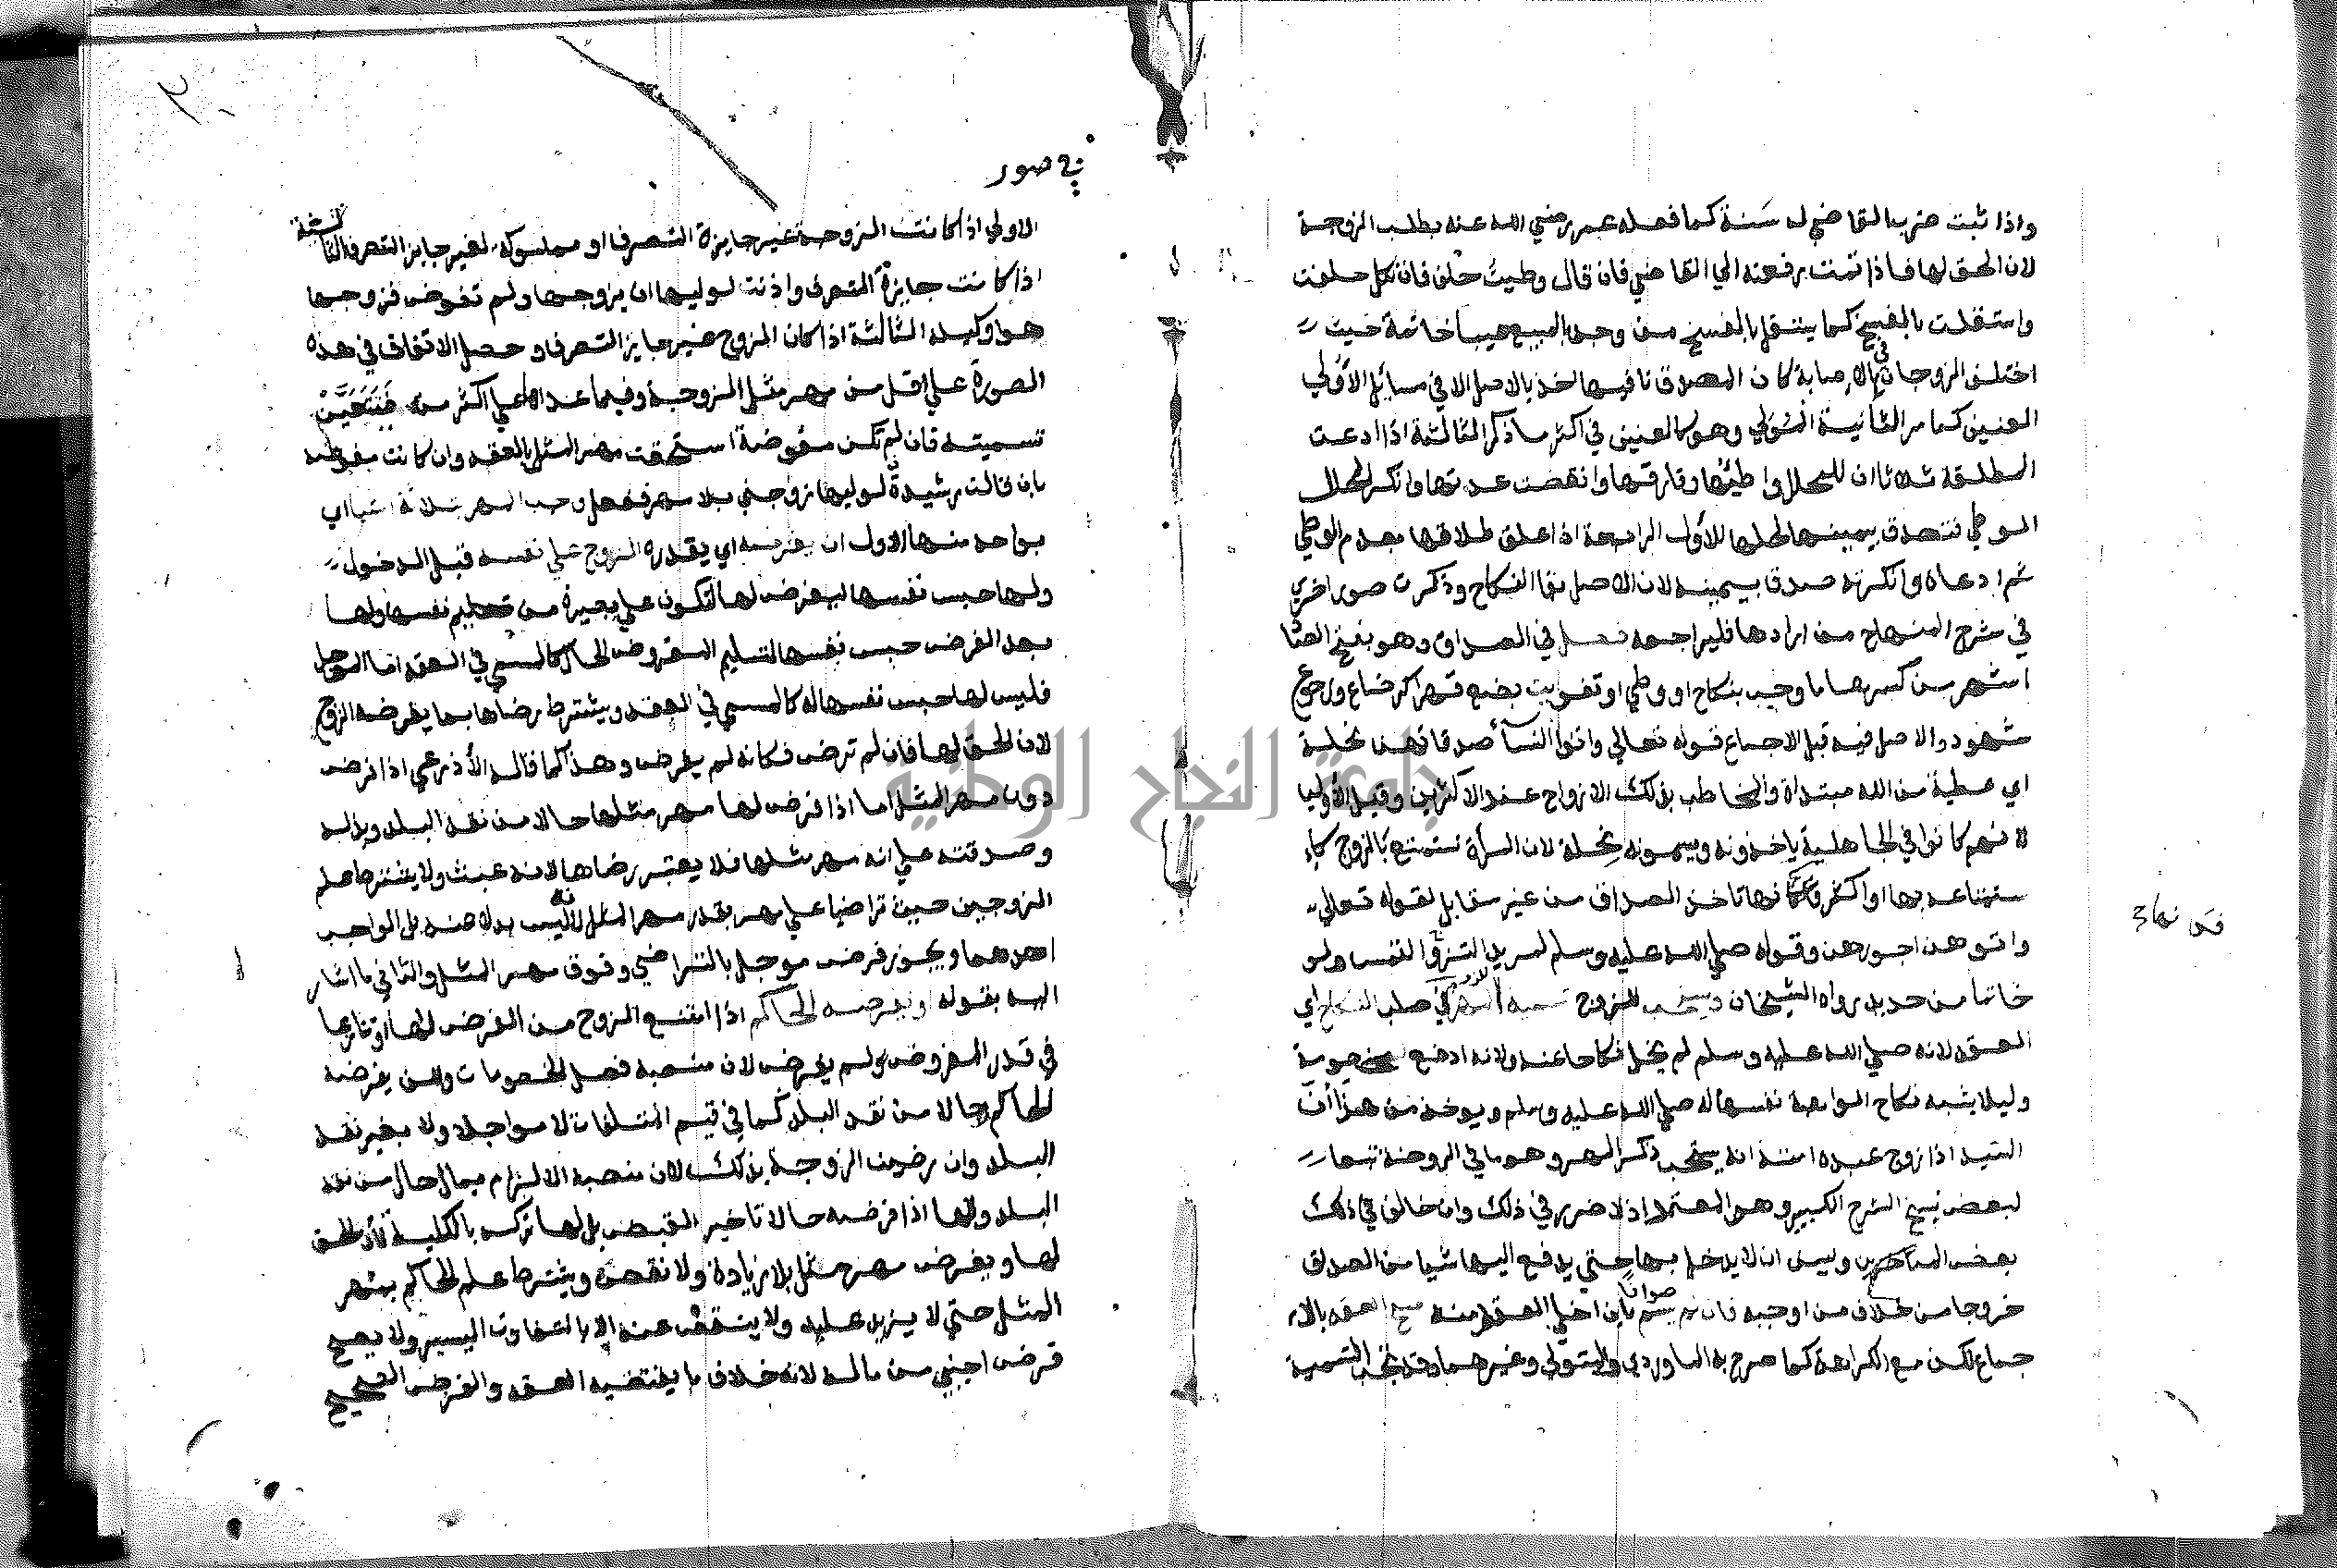 واذا ثبت ضرب القاضي له سَنة كما فعله عمر رضي الله عنه بطلب الزوجة
لان الحق لها فاذا تمت رفعته الي القاضي فان قال وطيت حلف فان نكل حلفت
واستقلت بالفسخ كما يستقل بالفسخ من وجد بالمبيع عيبا خاتمة حيث
اختلف الزوجان في الاصابة كان المصدق نافيها اخذ بالاصل الا في مسائل الأولي
العنين كما مر الثانية المُولي وهو كالعنين في اكثر ما ذكر الثالثة اذا ادعت
المطلقة ثلاثا ان المحلل وطئها وفارقها وانقضت عدتها وانكر المحلل
الوطي فتصدق بيمينها لحلها للأول الرابعة اذا علق طلاقها بعدم الوطي
ثم ادعاه وانكرته صدق بيمينه لان الاصل بقا النكاح وذكرت صورا اخري
في شرح المنهاج من ارادها فليراجعه فصل في الصداق وهو بفتح الصاد
اشهر من كسرها ما وجب بنكاح او وطي او تفويت بضع قهرا كرضاع ورجوع
شهود والاصل فيه قبل الاجماع قوله تعالي واتوا النسآ صدقاتهن نحلة
اي عطية من الله مبتداة والمخاطب بذلك الازواج عند الاكثرين وقيل الأوليا
لانهم كانوا في الجاهلية ياخذونه ويسمونه نحلة لان المرأة تستمتع بالزوج كا
ستمتاعه بها او اكثر فكانها تاخذ الصداق من غير مقابل لقوله تعالي
واتوهن اجورهن وقوله صلي الله عليه وسلم لمريد التزوج التمس ولو
خاتما من حديد رواه الشيخان ويستحب للزوج تسمية المهر في صلب النكاح اي
العقد لانه صلي الله عليه وسلم لم يخل نكاحا عنه ولانه ادفع للخصومة
وليلا يشبه نكاح الواهبة نفسها له صلي الله عليه وسلم ويوخذ من هذا أن
السيد اذا زوج عبده امته انه يستحب ذكر المهر وهو ما في الروضة تبعا
لبعض نسخ الشرح الكبير وهو المعتمد اذ لا ضرر في ذلك وان خالف في ذلك
بعض المتاخرين ويسن ان لا يدخل بها حتي يدفع اليها شيا من الصداق
خروجا من خلاف من اوجبه فان لم يسم بان اخلي العقد منه صح العقد بالاء
جماع لكن مع الكراهة كما صرح به الماوردي والمتولي وغيرهما وقد تجب التسمية
في صور
الاولي اذا كانت الزوجة غير جايزة التصرف او مملوكة لغير جايز التصرف الثانية
اذا كانت جايزة التصرف واذنت لوليها ان يزوجها ولم تفوض فزوجها
هو او وكيله الثالثة اذا كان الزوج غير جايز التصرف وحصل الاتفاق في هذه
الصورة علي اقل من مهر مثل الزوجة وفيما عداها علي اكثر منه فَتَتَعَيَّنْ
تسميته فان لم تكن مفوضة استحقت مهر المثل بالعقد وان كانت مفوضة
بان قالت رشيدة لوليها زوجني بلا مهر ففعل وجب المهر بثلاثة اشيا اي
بواحد منها الاول ان يفرضه اي يقدره الزوج علي نفسه قبل الدخول
ولها حبس نفسها ليفرض لها لتكون علي بصيرة من تسليم نفسها ولها
بعد الفرض حبس نفسها لتسليم المفروض الحال كالمسمي في العقد اما الموجل
فليس لها حبس نفسها له كالمسمي في العقد ويشترط رضاها بما يفرضه الزوج
لان الحق لها فان لم ترض فكانه لم يفرض وهذا كما قال الأذرعي اذا فرض
دون مهر المثل اما اذا فرض لها مهر مثلها حالا من نقد البلد وبذله
وصدقته علي انه مهر مثلها فلا يعتبر رضاها لانه عبث ولا يشترط علم
الزوجين حيث تراضيا علي مهر بقدر مهر المثل لانه ليس بدلا عنه بل الواجب
احدهما ويجوز فرض موجل بالتراضي وفوق مهر المثل والثاني ما اشار
اليه بقوله او يفرضه الحاكم اذا امتنع الزوج من الفرض لها او تنازعا
في قدر المفروض ولم يفرض لان منصبه فصل الخصومات ولكن يفرضه
الحاكم حالا من نقد البلد كما في قيم المتلفات لا مواجلا ولا بغير نقد
البلد وان رضيت الزوجة بذلك لان منصبه الالزام بمال حال من نقد
البلد ولها اذا فرضه حالا تاخير القبض بل لها تركه بالكلية لأن الحق
لها ويفرض مهر مثل بلا زيادة ولا نقص ويشترط علم الحاكم بمهر
المثل حتي لا يزيد عليه ولا ينقص عنه الا بالتفاوت اليسير ولا يصح
فرض اجنبي من ماله لانه خلاف ما يقتضيه العقد والفرض الصحيح
جامعة النجاح الوطنية